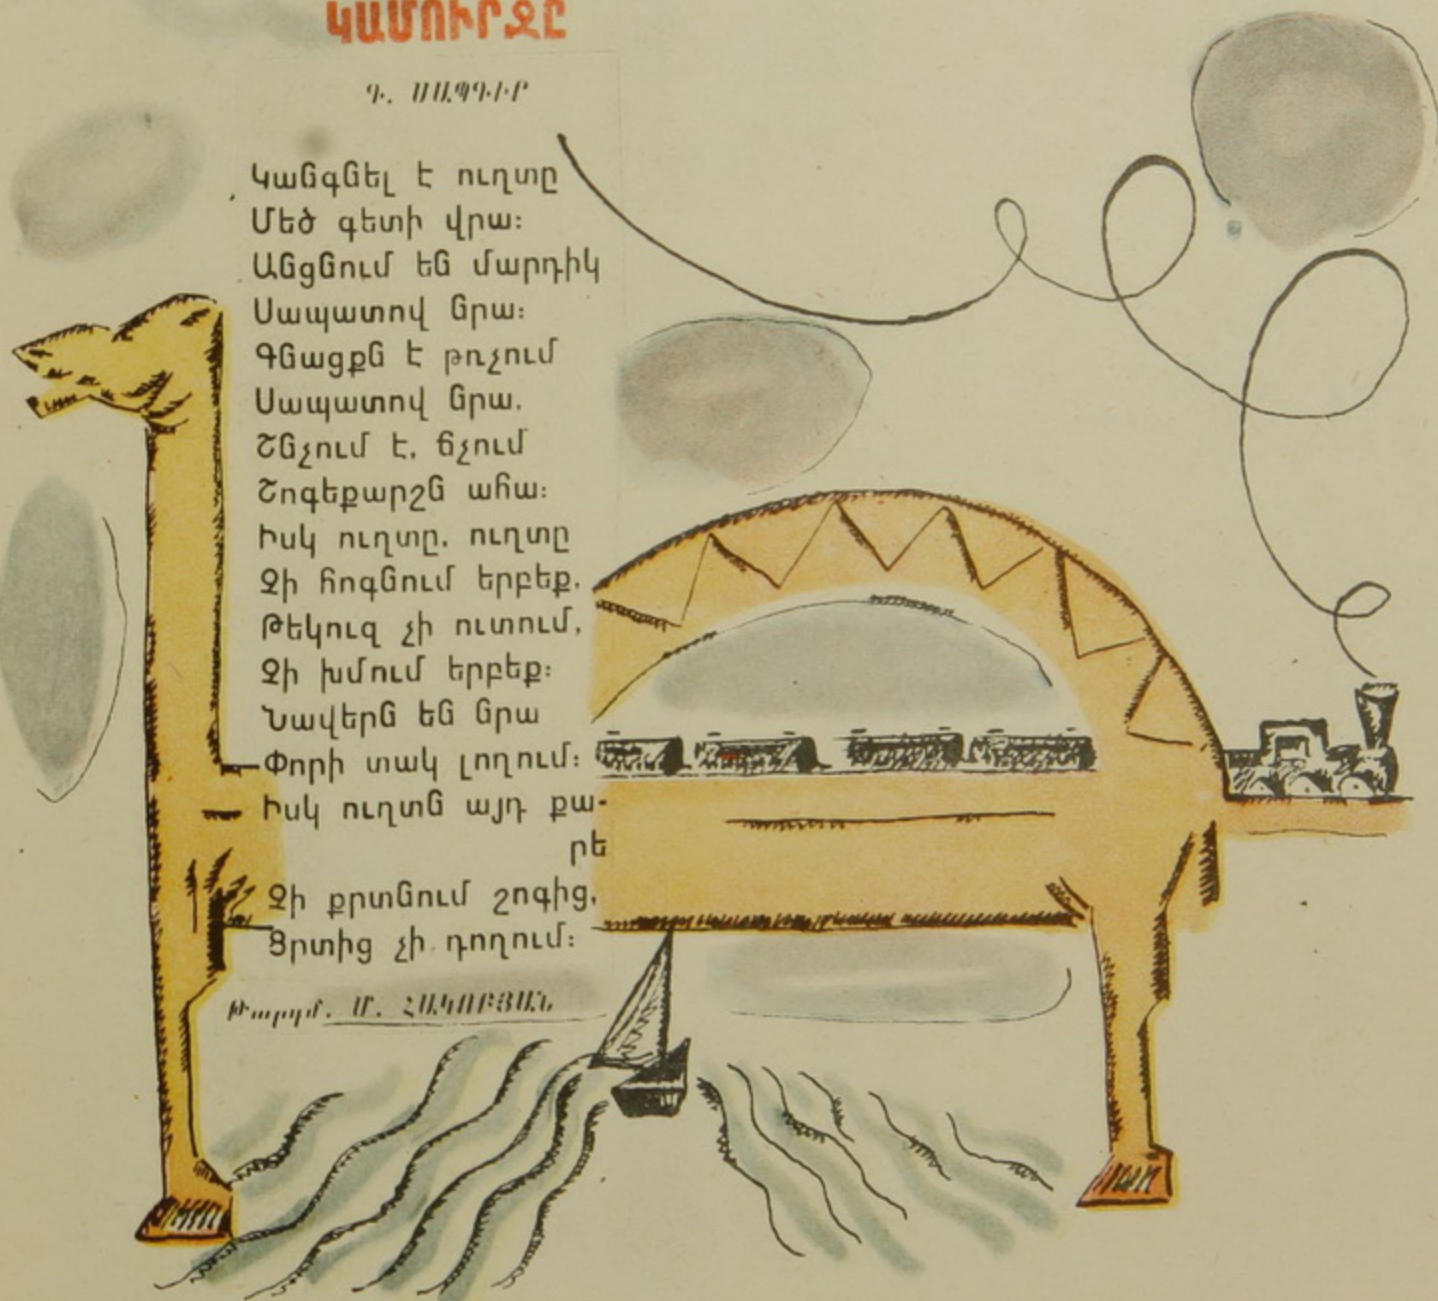 ԿԱՄՈՒՐՋԸ
Գ. ՍԱՊԳԻՐ
Կանգնել է ուղտը
Մեծ գետի վրա։
Անցնում են մարդիկ
Սապատով նրա։
Գնացքն է թռչում
Սապատով նրա.
Շնչում է, ճչում
Շոգեքարշն ահա։
Իսկ ուղտը, ուղտը
Չի հոգնում երբեք,
Թեկուզ չի ուտում,
Չի խմում երբեք։
Նավերն են նրա
Փորի տակ լողում։
Իսկ ուղտն այդ քա-
րե
Չի քրտնում շոգից,
Ցրտից չի դողում։
Թարգմ. Մ. ՀԱԿՈԲՅԱՆ